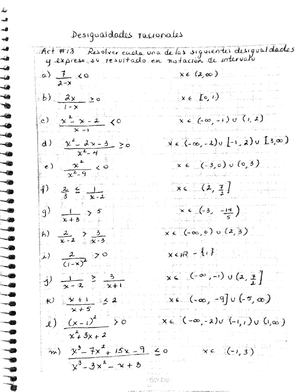 Desigualdades racionales
Act #13 Resolver cada una de las siguientes desigualdades
y exprese su resultado en notación de intervalo
a) 7/(2-x) < 0 x ∈ (2, ∞)
b) 2x/(1-x) ≥ 0 x ∈ [0, 1)
c) (x² - x - 2)/(x-1) < 0 x ∈ (-∞, -1) ∪ (1, 2)
d) (x² - 2x - 3)/(x² - 4) ≥ 0 x ∈ (-∞, -2) ∪ [-1, 2) ∪ [3, ∞)
e) x²/(x² - 9) < 0 x ∈ (-3, 0) ∪ (0, 3)
f) 2/3 ≤ 1/(x-2) x ∈ (2, 7/2]
g) 1/(x+3) > 5 x ∈ (-3, -14/5)
h) 2/(x-2) > 3/(x-3) x ∈ (-∞, 0) ∪ (2, 3)
i) 2/(1-x)² > 0 x ∈ ℝ - {1}
j) 1/(x-2) ≥ 3/(x+1) x ∈ (-∞, -1) ∪ (2, 7/2]
k) (x+1)/(x+5) ≤ 2 x ∈ (-∞, -9] ∪ (-5, ∞)
l) (x-1)²/(x²+3x+2) > 0 x ∈ (-∞, -2) ∪ (-1, 1) ∪ (1, ∞)
m) (x³ - 7x² + 15x - 9)/(x³ - 3x² - x + 3) ≤ 0 x ∈ (-1, 3)